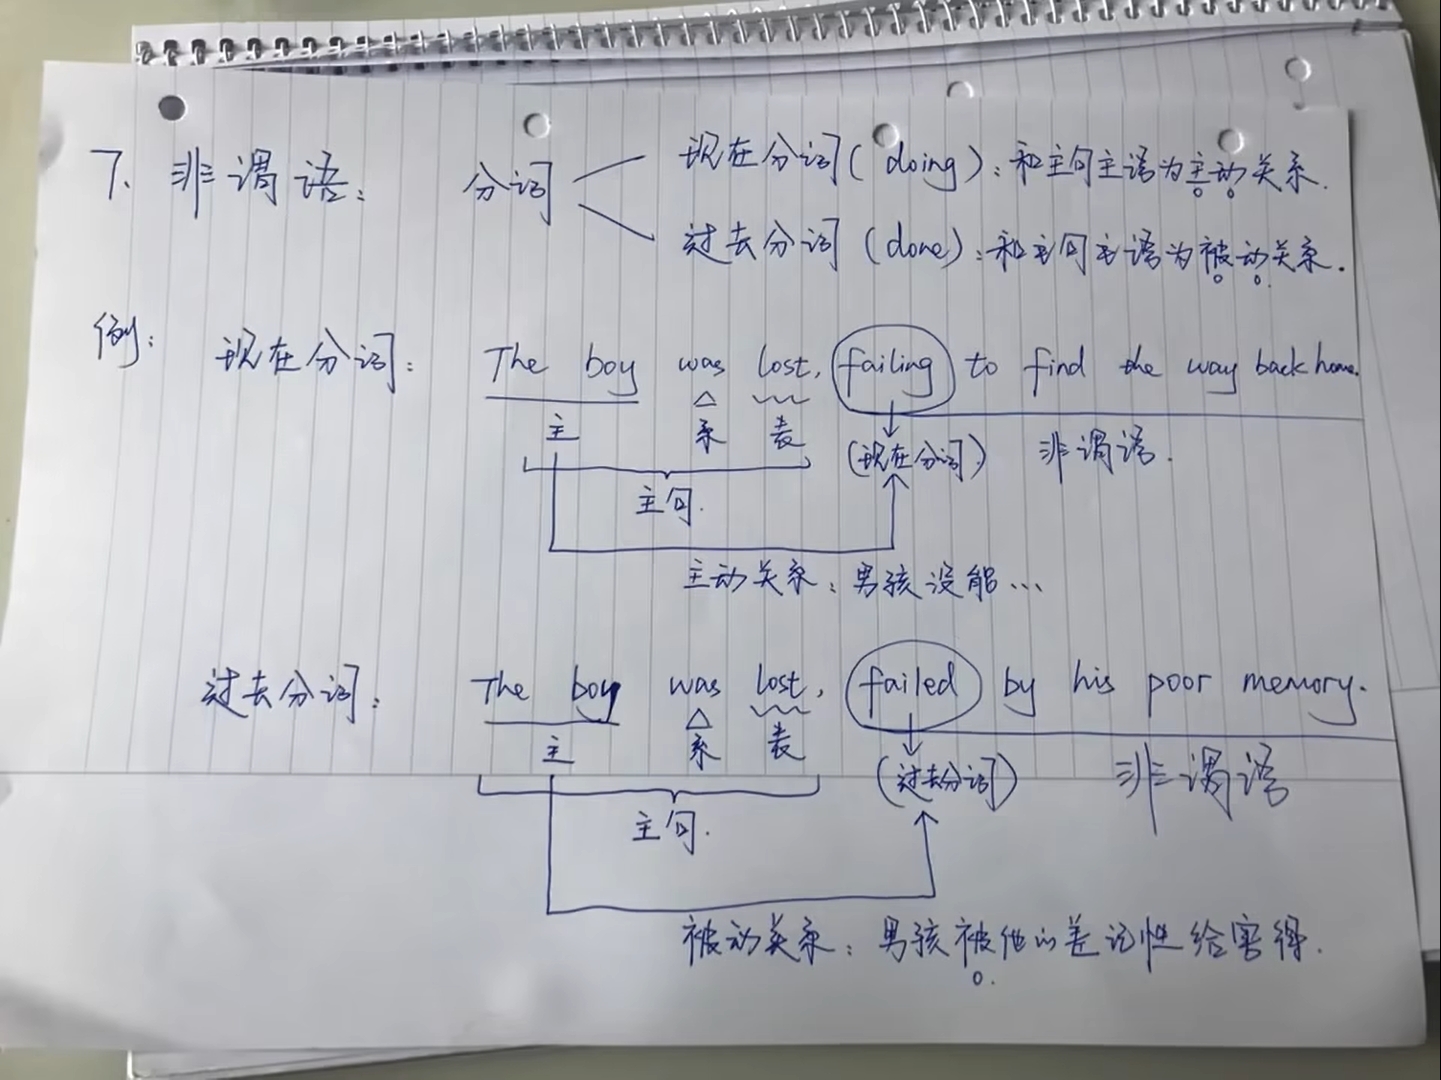 7. 非谓语: 分词
现在分词( doing ): 和主句主语为主动关系.
过去分词 (done): 和主句主语为被动关系.
例: 现在分词: The boy was lost, failing to find the way back home.
主 系 表 (现在分词) 非谓语.
主句.
主动关系: 男孩没能...
过去分词: The boy was lost, failed by his poor memory.
主 系 表 (过去分词) 非谓语
主句.
被动关系: 男孩被他的差记性给害得.